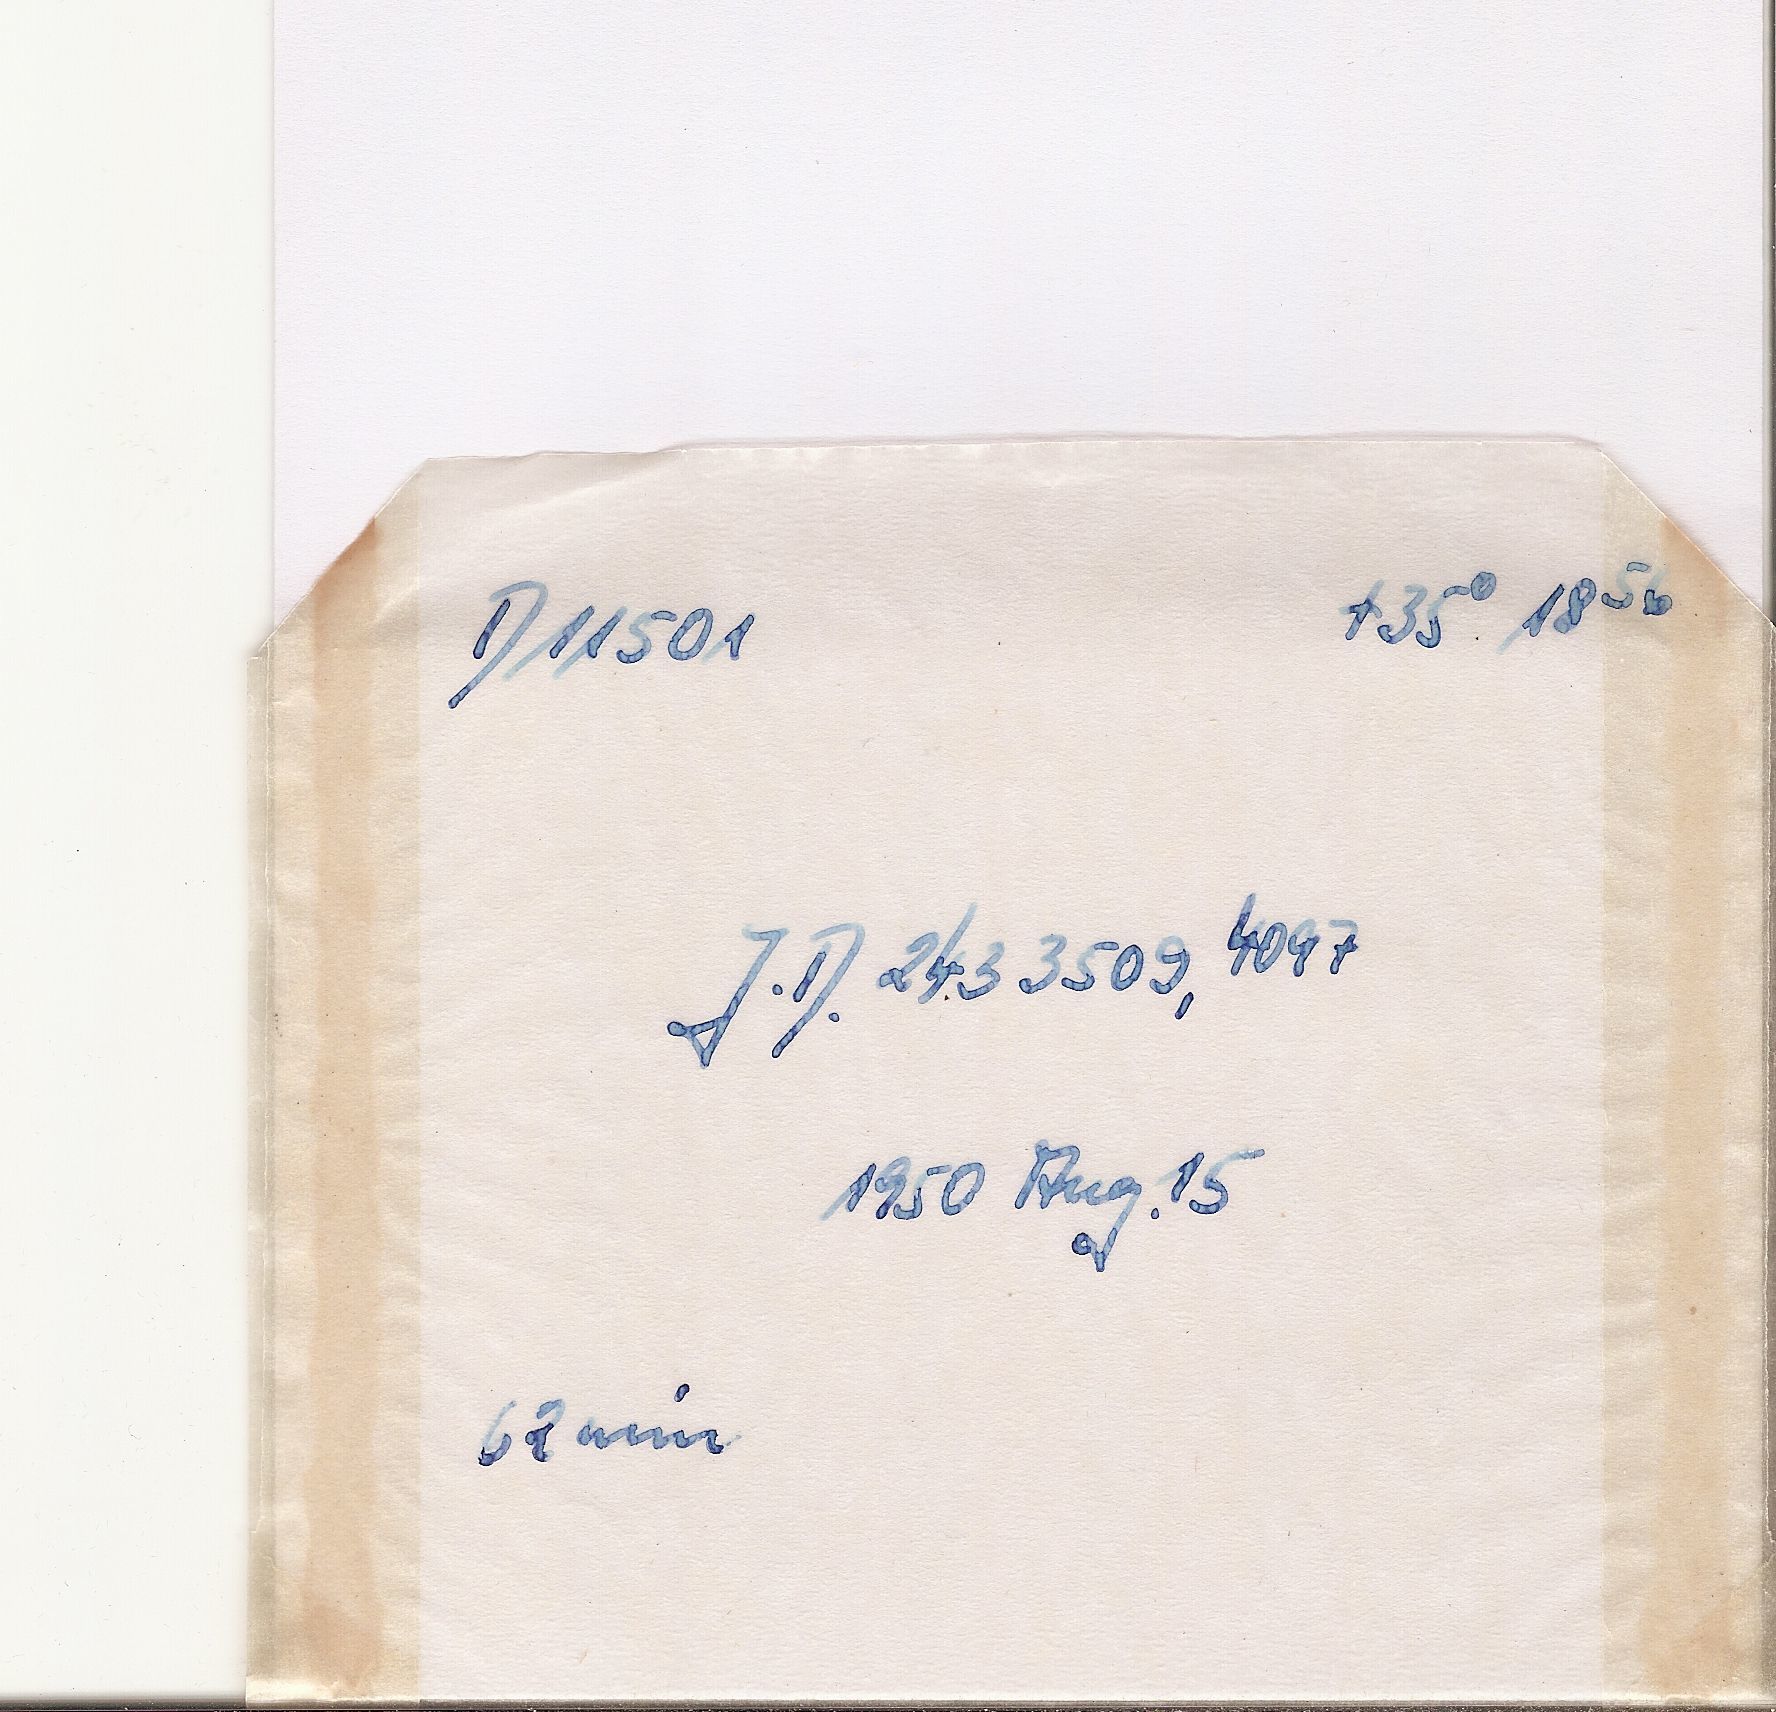 D 11501 +35° 18⁵⁶
J.D. 243 3509,4097
1950 Aug. 15
62 min